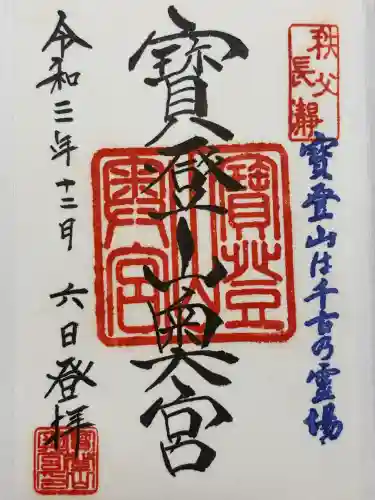 秩父
長瀞
寳登山は千古乃霊場
寳登山奥宮
寳登山奥宮
令和二年十二月六日登拝